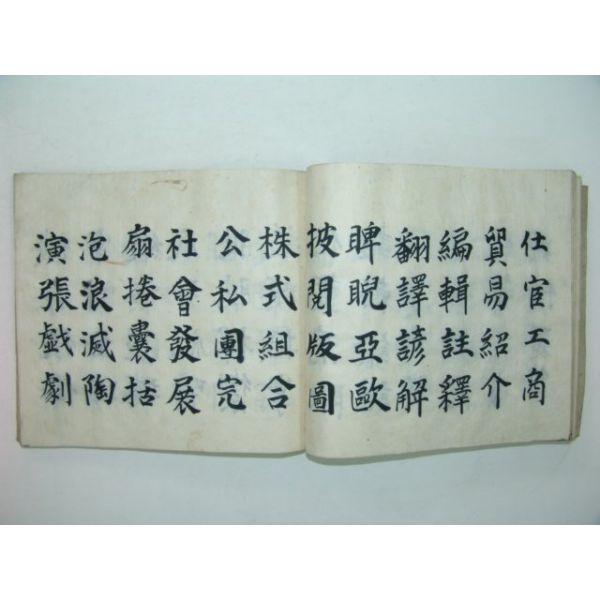 仕宦工商
貿易紹介
編輯註釋
翻譯諺解
睥睨亞歐
披閱版圖
株式組合
公私團完
社會發展
扇捲囊括
泡浪滅陶
演張戲劇